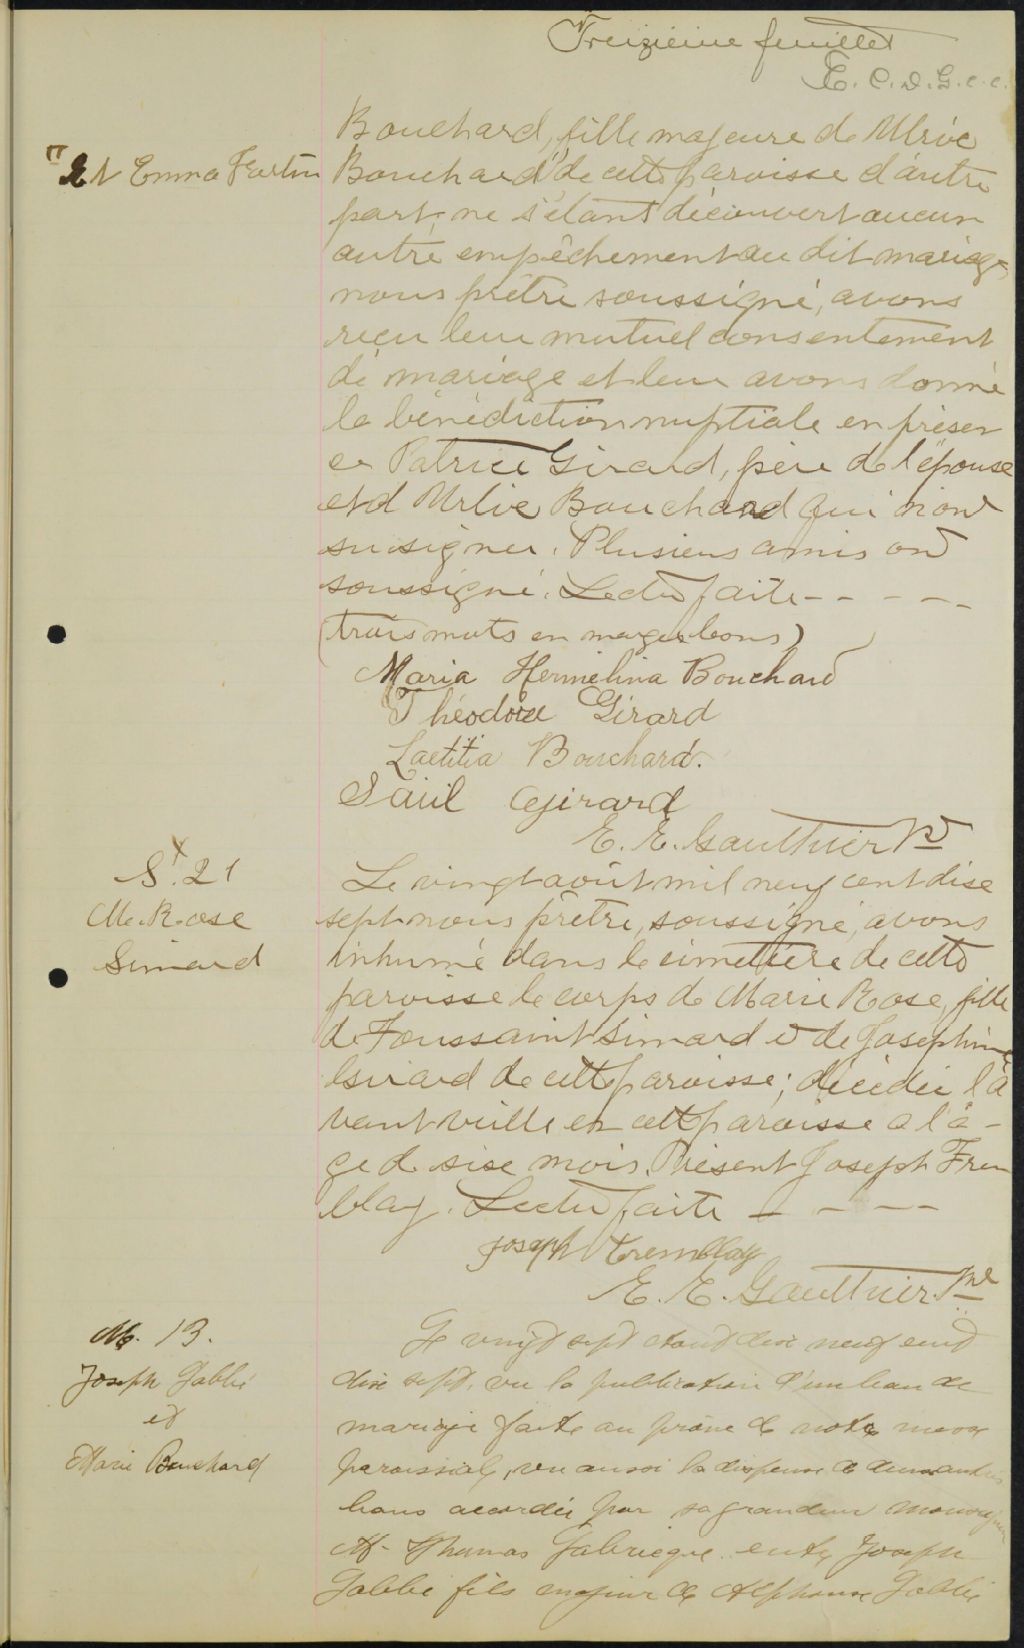 Treizième feuillet
E. C. D. G. c. c.
Bouchard, fille majeure de Ulric
"Et Emma Fortin
Bouchard" de cette paroisse d'autre
part; ne s'étant découvert aucun
autre empêchement au dit mariage,
nous prêtre soussigné, avons
reçu leur mutuel consentement
de mariage et leur avons donné
la bénédiction nuptiale en présen
ce Patrice Girard, père de l'épouse
et d Urlic Bouchard qui n'ont
su signer. Plusieurs amis ont
soussigné. Lectu faite - - - - -
(trois mots en marge bons)
Maria Hermelina Bouchard
Théodore Girard
Laetitia Bouchard.
Saül Girard
E. E. Gauthier Pt
S. 21
M. Rose
Simard
Le vingt août mil neuf cent dise
sept nous prêtre, soussigné, avons
inhumé dans le cimetière de cette
paroisse le corps de Marie Rose, fille
de Toussaint Simard et de Josephine
Girard de cette paroisse; décédée l'a
vant veille en cette paroisse a l'â-
ge de sise mois. Présent Joseph Trem
blay. Lectu faite - - - -
Joseph Tremblay
E. E. Gauthier. Pt
M. 13.
Joseph Gobbé
et
Marie Bouchard
Le vingt sept d'aout dix neuf cent
dix sept, vu la publication d'un ban de
mariage faite au prône de notre messe
paroissiale, vu aussi la dispense de deux autres
bans accordée par sa grandeur Monseigneur
M. Thomas Labrecque entre Joseph
Gobbé fils majeur de Alphonse Gobbé